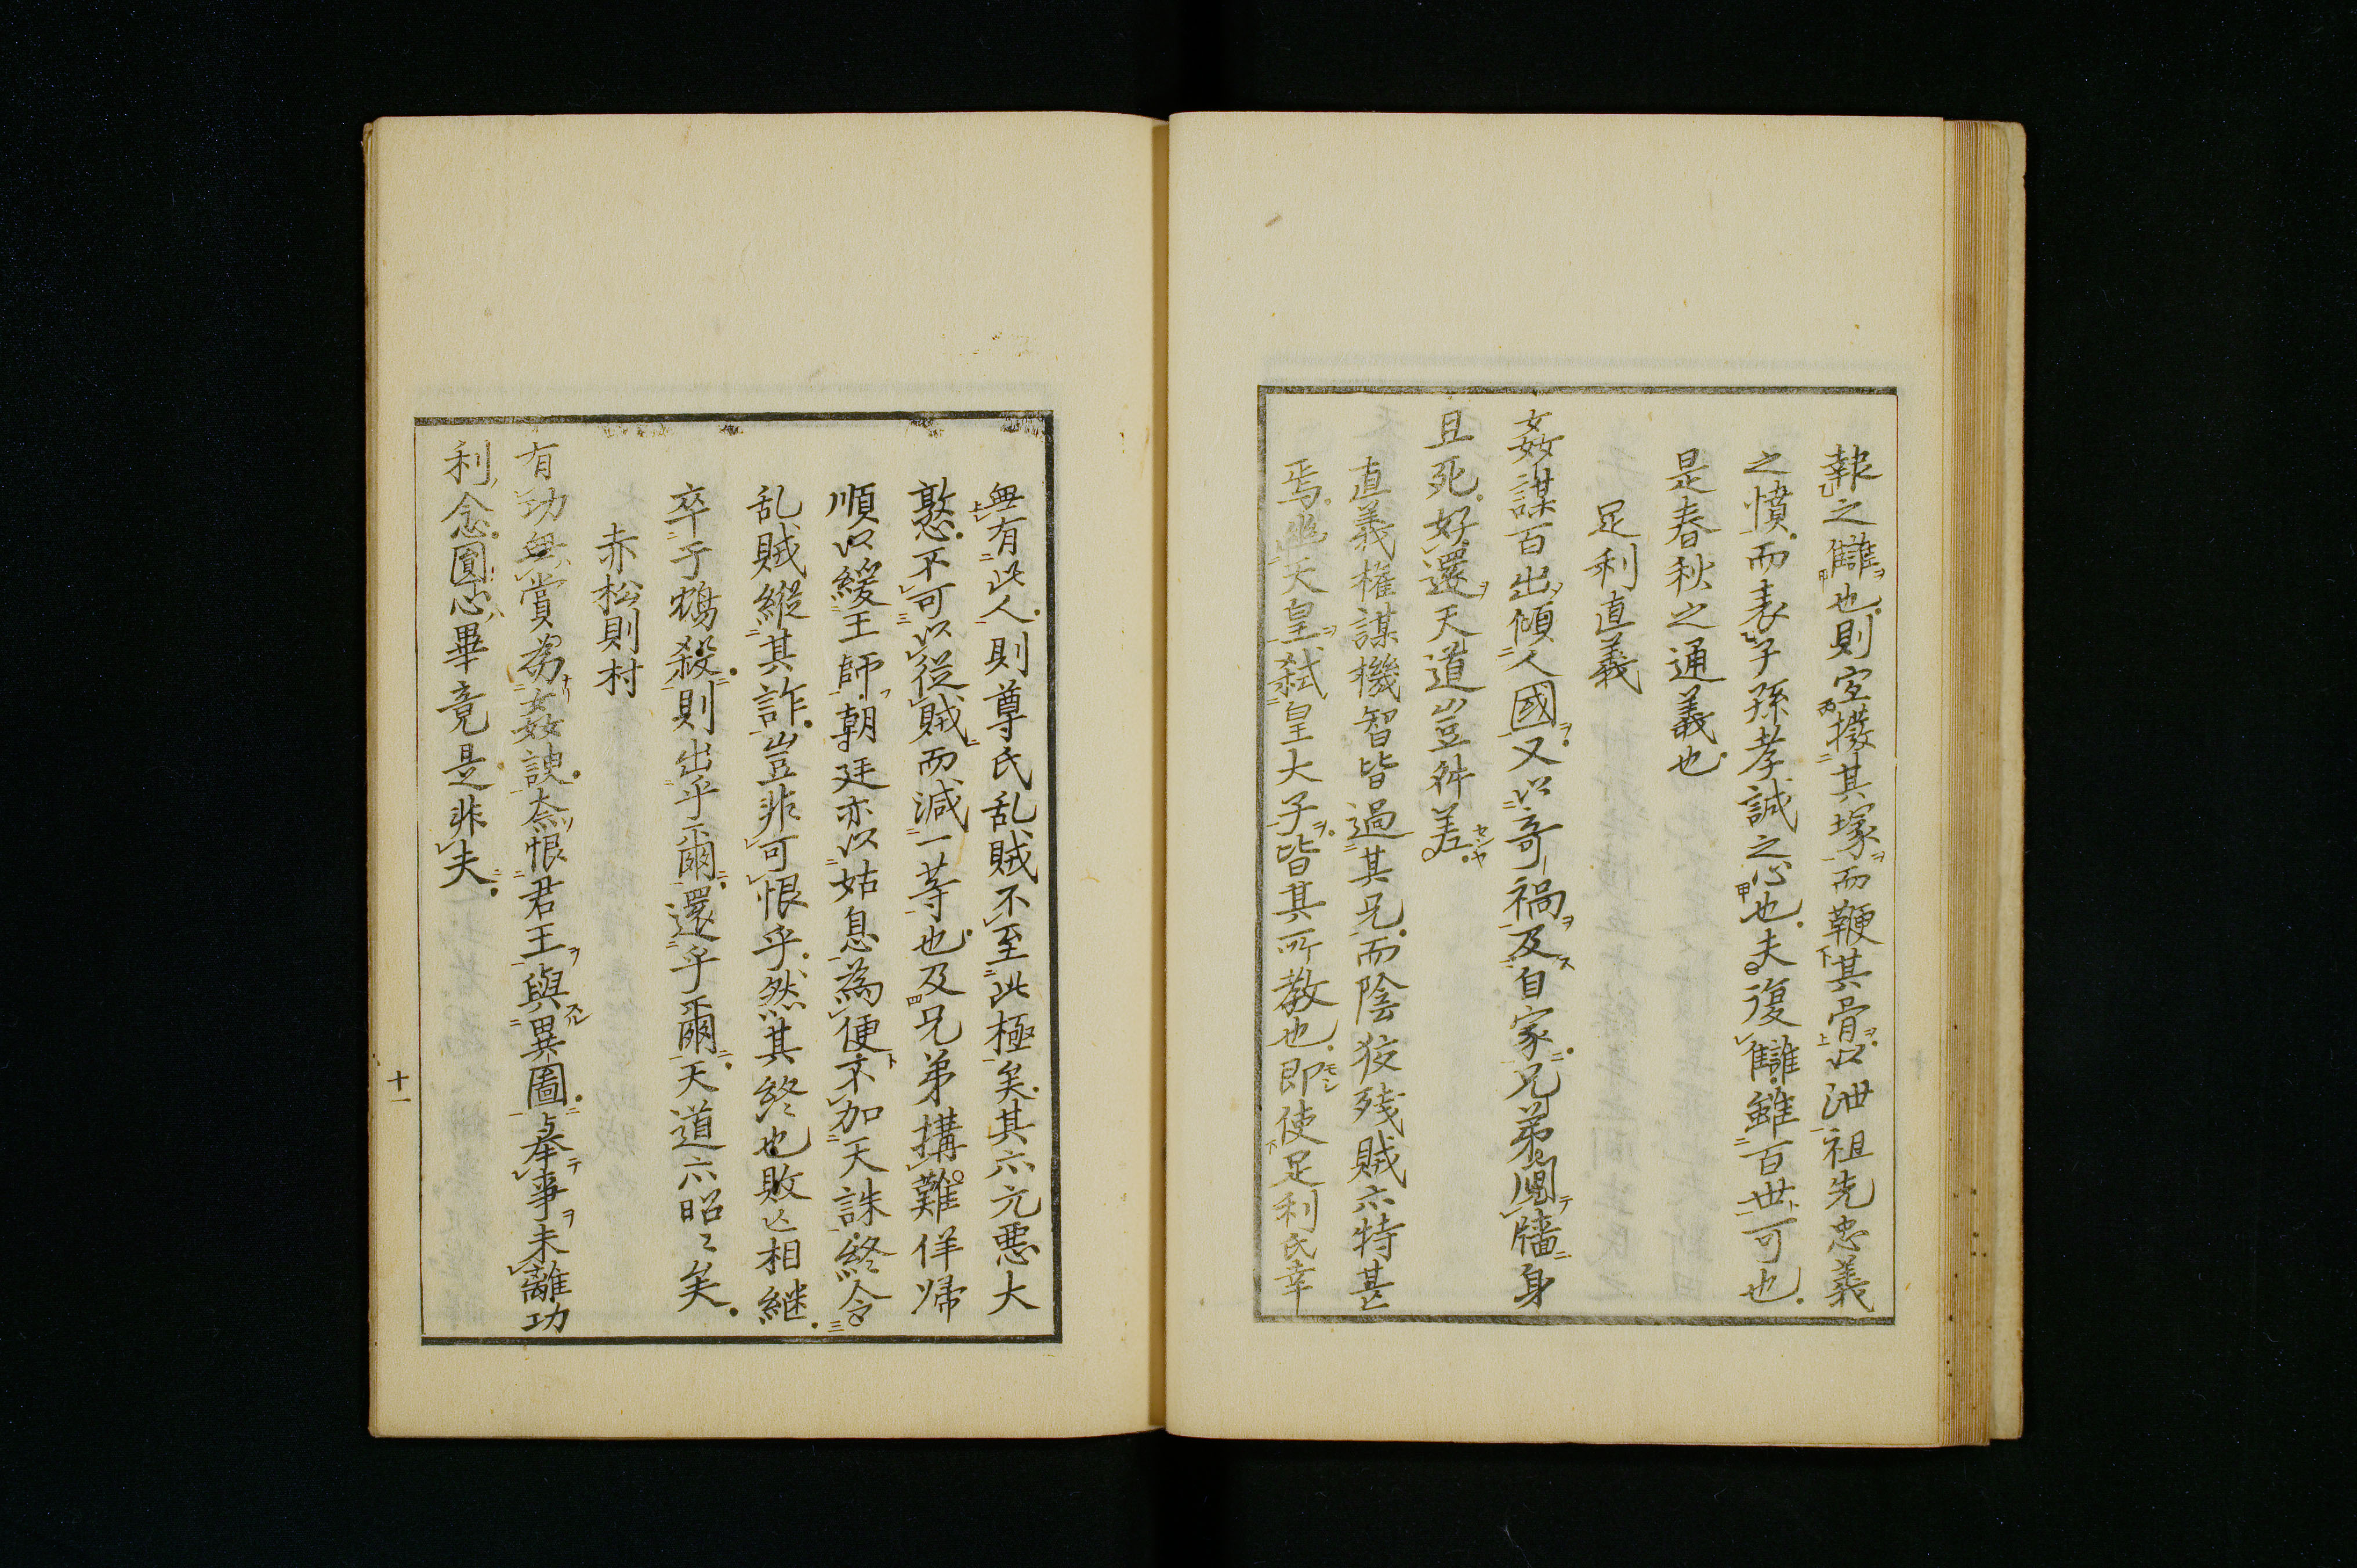 報之讎也則宜撥其塚而鞭其骨以泄祖先忠義
之憤而表子孫孝誠之心也夫復讎雖百世可也
是春秋之通義也
足利直義
姦謀百出傾人國又以奇禍及自家兄弟鬩牆身
且死好還天道豈舛差
直義権謀機智皆過其兄而陰狡残賊亦特甚
焉幽天皇弑皇大子皆其所教也即使足利氏幸
無有此人則尊氏乱賊不至此極矣其亦元悪大
憝不可以従賊而減一等也及兄弟搆難佯帰
順以緩王師朝廷亦以姑息為便不加天誅終令
乱賊縦其詐豈非可恨乎然其終也敗亡相継
卒于鴆殺則出乎爾還乎爾天道亦昭〻矣
赤松則村
有功無賞為姦諛奈恨君王與異圖挙事未離功
利念圓心畢竟是非夫
十一